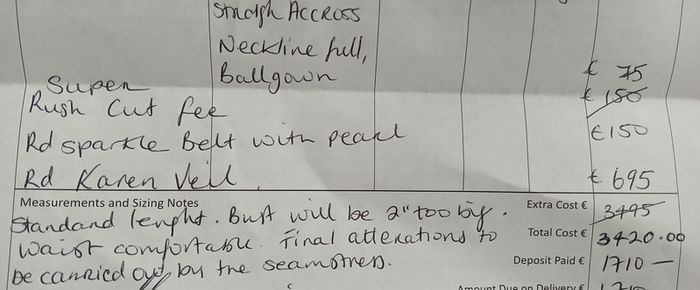 Straigh Accross
Neckline full,
Ballgown
€ 75
Super
€ 150
Rush Cut fee
€150
Rd sparkle Belt with pearl
Rd Karen Veil.
€ 695
Measurements and Sizing Notes
Extra Cost € 3495
Standard lenght. Bust will be 2" too big.
Total Cost € 3420.00
waist comfortable. Final alterations to
Deposit Paid € 1710 —
be carried out by the seamstress.
Amount Due on Delivery € 1710